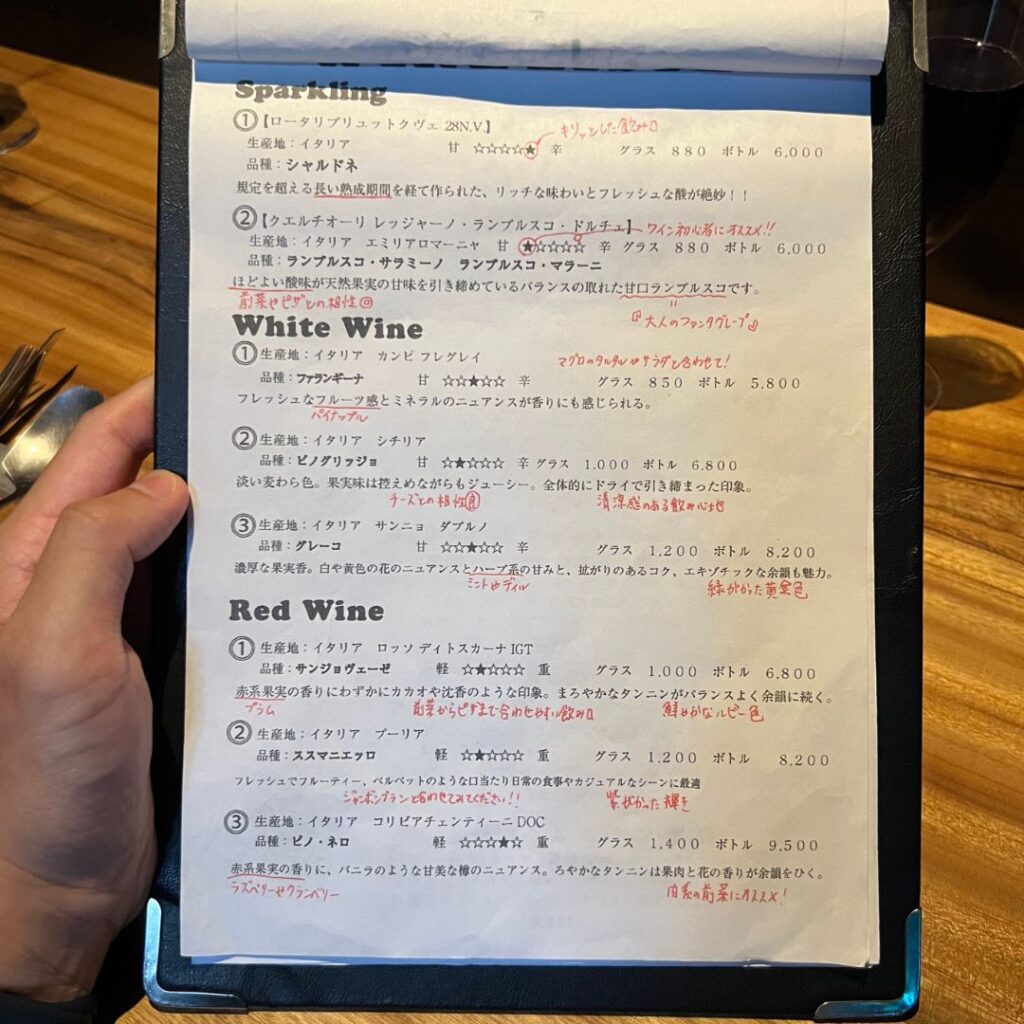 Sparkling
①【ロータリブリュットクヴェ 28N.V.】 キリッとした飲み口
生産地：イタリア 甘 ☆☆☆☆★ 辛 グラス 880 ボトル 6,000
品種：シャルドネ
規定を超える長い熟成期間を経て作られた、リッチな味わいとフレッシュな酸が絶妙！！
②【クエルチオーリ レッジャーノ・ランブルスコ・ドルチェ】 ワイン初心者にオススメ!!
生産地：イタリア エミリアロマーニャ 甘 ★☆☆☆☆ 辛 グラス 880 ボトル 6,000
品種：ランブルスコ・サラミーノ ランブルスコ・マラーニ
ほどよい酸味が天然果実の甘味を引き締めているバランスの取れた甘口ランブルスコです。
前菜やピザとの相性◎ 『大人のファンタグレープ』
White Wine
①生産地：イタリア カンピ フレグレイ マグロのタルタルやサラダと合わせて!
品種：ファランギーナ 甘 ☆☆★☆☆ 辛 グラス 850 ボトル 5,800
フレッシュなフルーツ感とミネラルのニュアンスが香りにも感じられる。
パイナップル
②生産地：イタリア シチリア
品種：ピノグリッジョ 甘 ☆★☆☆☆ 辛 グラス 1,000 ボトル 6,800
淡い麦わら色。果実味は控えめながらもジューシー。全体的にドライで引き締まった印象。
チーズとの相性良 清涼感のある飲み心地
③生産地：イタリア サンニョ ダブルノ
品種：グレーコ 甘 ☆☆★☆☆ 辛 グラス 1,200 ボトル 8,200
濃厚な果実香。白や黄色の花のニュアンスとハーブ系の甘みと、拡がりのあるコク、エキゾチックな余韻も魅力。
ミントやディル 緑がかった黄金色
Red Wine
①生産地：イタリア ロッソ ディトスカーナ IGT
品種：サンジョヴェーゼ 軽 ☆★☆☆☆ 重 グラス 1,000 ボトル 6,800
赤系果実の香りにわずかにカカオや沈香のような印象。まろやかなタンニンがバランスよく余韻に続く。
プラム 前菜からピザまで合わせやすい飲み口 鮮やかなルビー色
②生産地：イタリア プーリア
品種：ススマニエッロ 軽 ☆★☆☆☆ 重 グラス 1,200 8,200
フレッシュでフルーティー、ベルベットのような口当たり日常の食事やカジュアルなシーンに最適
ジャンボンブランと合わせてみてください!! 紫がかった輝き
③生産地：イタリア コリピアチェンティーニ DOC
品種：ピノ・ネロ 軽 ☆☆☆★☆ 重 グラス 1,400 ボトル 9,500
赤系果実の香りに、バニラのような甘美な樽のニュアンス。ろやかなタンニンは果肉と花の香りが余韻をひく。
ラズベリーやクランベリー 肉系の前菜にオススメ!